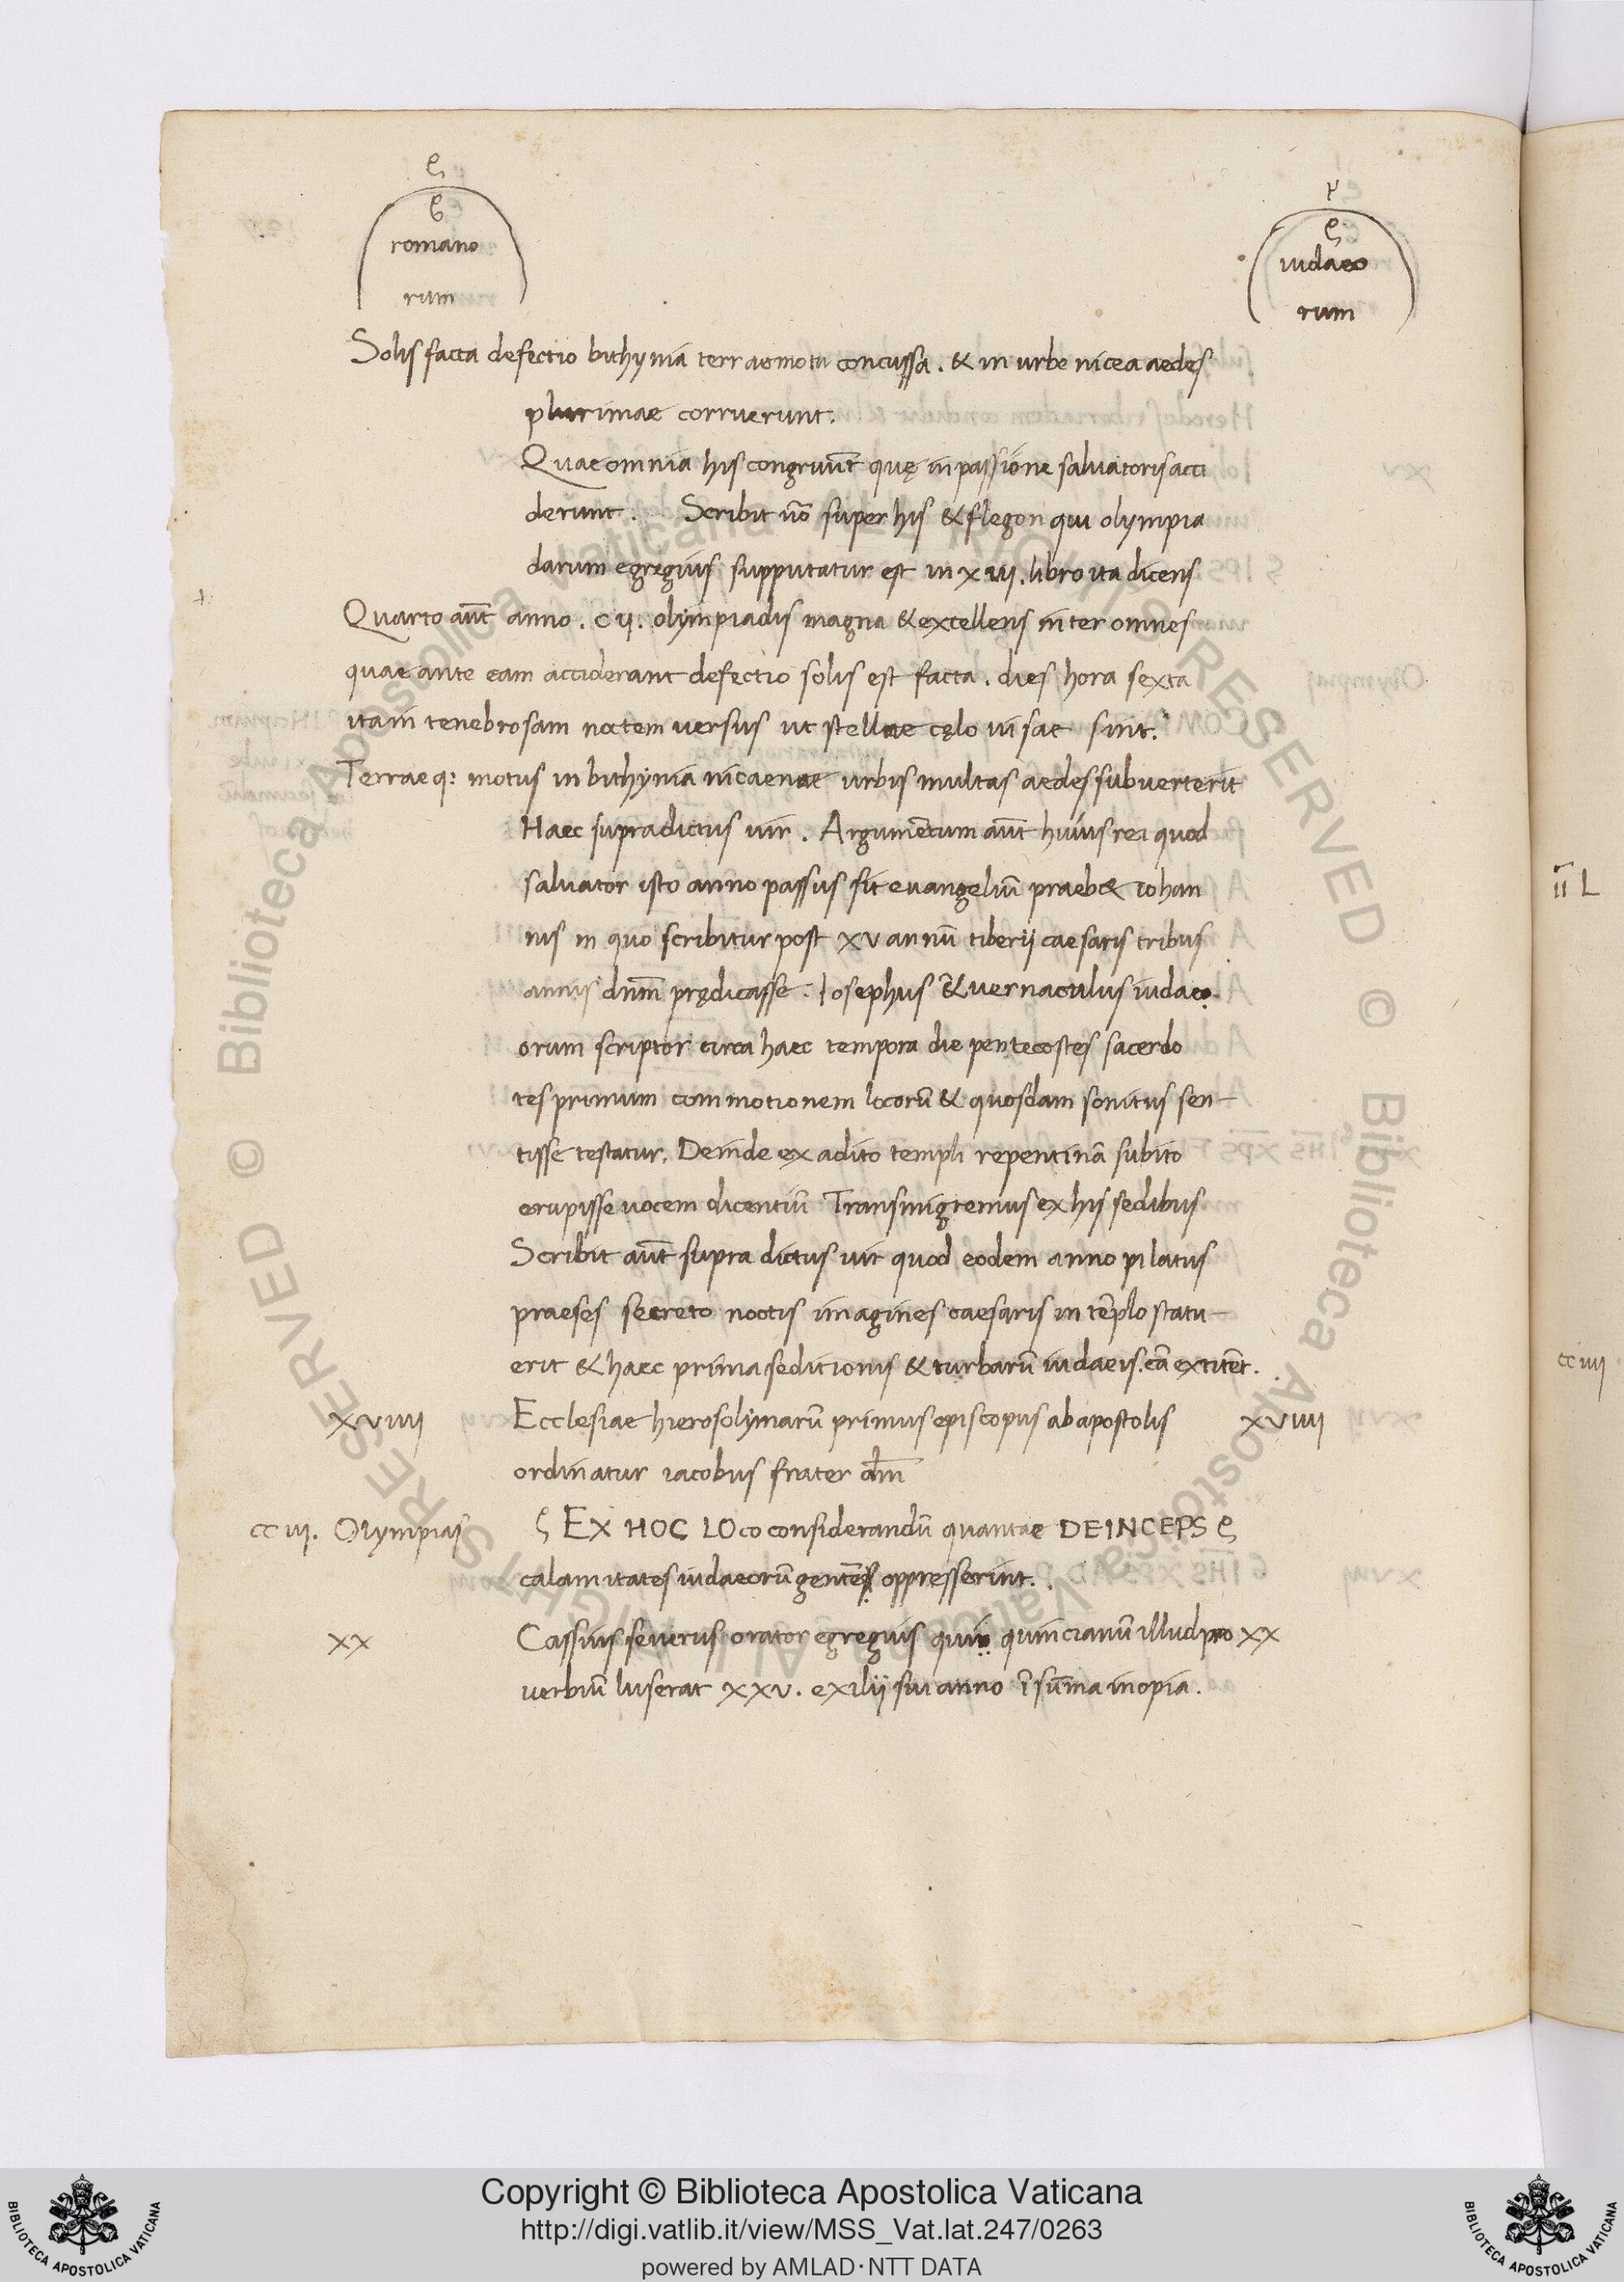 romano
rum
iudaeo
rum
Solis facta defectio bithynia terraemotu concussa . & in urbe nicea aedes
plurimae corruerunt.
Quae omnia his congruūt quę in passione saluatoris acci
derunt . Scribit uō super his & flegon qui olympia
darum egregius supputatur est in xiii . libro ita dicens
Quarto aūt anno . cii . olympiadis magna & excellens inter omnes
quae ante eam acciderant defectio solis est facta . dies hora sexta
ita in tenebrosam noctem uersus ut stellae cęlo uisae sint.
Terraeq: motus in bithynia nicaenae urbis multas aedes subuerterit
Haec supradictus uir . Argumētum aūt huius rei quod
saluator isto anno passus sit euangeliū praeb& iohan
nis in quo scribitur post xv annū tiberii caesaris tribus
annis dnm̄ prędicasse . Iosephus &̄ uernaculus iudaeo
orum scriptor circa haec tempora die pentecostes sacerdo
tes primum commotionem locorū & quosdam sonitus sen-
tisse testatur. Deinde ex adito templi repentinā subito
erupisse uocem dicentiū Transmigremus ex his sedibus
Scribit aūt supra dictus uir quod eodem anno pilatus
praeses secreto noctis imagines caesaris in tēplo statu-
erit & haec prima seditionis & turbarū iudaeis . cā extitēt .
xviiii Ecclesiae hierosolymarū primus episcopus ab apostolis xviiii
ordinatur iacobus frater dm̄
cciii . Olympias EX HOC LOco considerandū quantae DEINCEPS
calamitates iudaeorū gentēs oppresserint .
xx Cassius seuerus orator egregius quin quincianū illud pro xx
uerbiū luserat xxv . exilii sui anno ī sūma inopia .
ii L
cciiii
Copyright © Biblioteca Apostolica Vaticana
http://digi.vatlib.it/view/MSS_Vat.lat.247/0263
powered by AMLAD·NTT DATA
BIBLIOTECA APOSTOLICA VATICANA
BIBLIOTECA APOSTOLICA VATICANA
© Biblioteca Apostolica Vaticana ALL RIGHTS RESERVED © Biblioteca Apostolica Vaticana ALL RIGHTS RESERVED